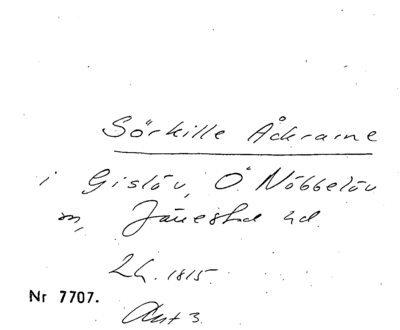 Sörkille Åkrarne
i Gislöv, Ö Nöbbelöv
sn, Järrestad hd.
Lh. 1815.
Nr 7707.
Akt 3.